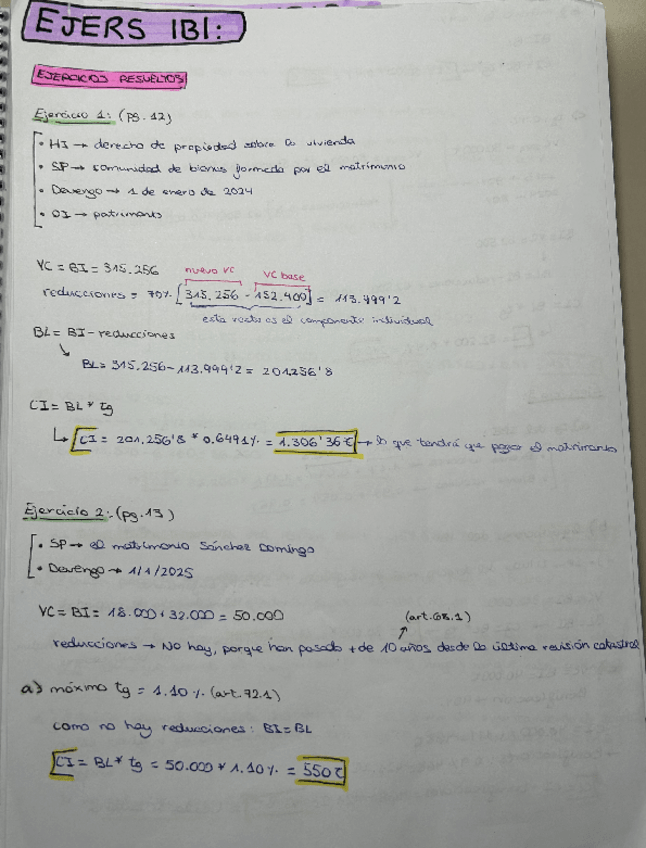 EJERS IBI:
EJERCICIOS RESUELTOS
Ejercicio 1: (pg. 12)
• HI → derecho de propiedad sobre la vivienda
• SP → comunidad de bienes formada por el matrimonio
• Devengo → 1 de enero de 2024
• OI → patrimonio
nuevo VC VC base
VC = BI = 315.256
reducciones = 70% [315.256 - 152.400] = 113.999'2
esta resta es el componente individual
BL = BI - reducciones
BL = 315.256 - 113.999'2 = 201.256'8
CI = BL * tg
CI = 201.256'8 * 0.6491% = 1.306'36€ → lo que tendrá que pagar el matrimonio
Ejercicio 2: (pg. 13)
• SP → el matrimonio Sánchez Domingo
• Devengo → 1/1/2025
VC = BI = 18.000 + 32.000 = 50.000
(art. 68.1)
reducciones → No hay, porque han pasado + de 10 años desde la última revisión catastral
a) máximo tg = 1.10% (art. 72.1)
como no hay reducciones: BI = BL
CI = BL * tg = 50.000 * 1.10% = 550€